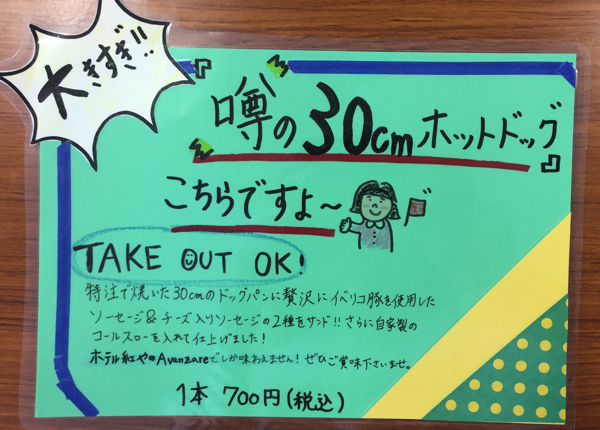 大きすぎ!!
噂の30cmホットドッグ
こちらですよ～
TAKE OUT OK!
特注で焼いた30cmのドッグパンに贅沢にイベリコ豚を使用した
ソーセージ&チーズ入りソーセージの2種をサンド!!さらに自家製の
コールスローを入れて仕上げました!
ホテル紅やのAvanzareでしか味わえません!ぜひご賞味下さいませ。
1本 700円(税込)